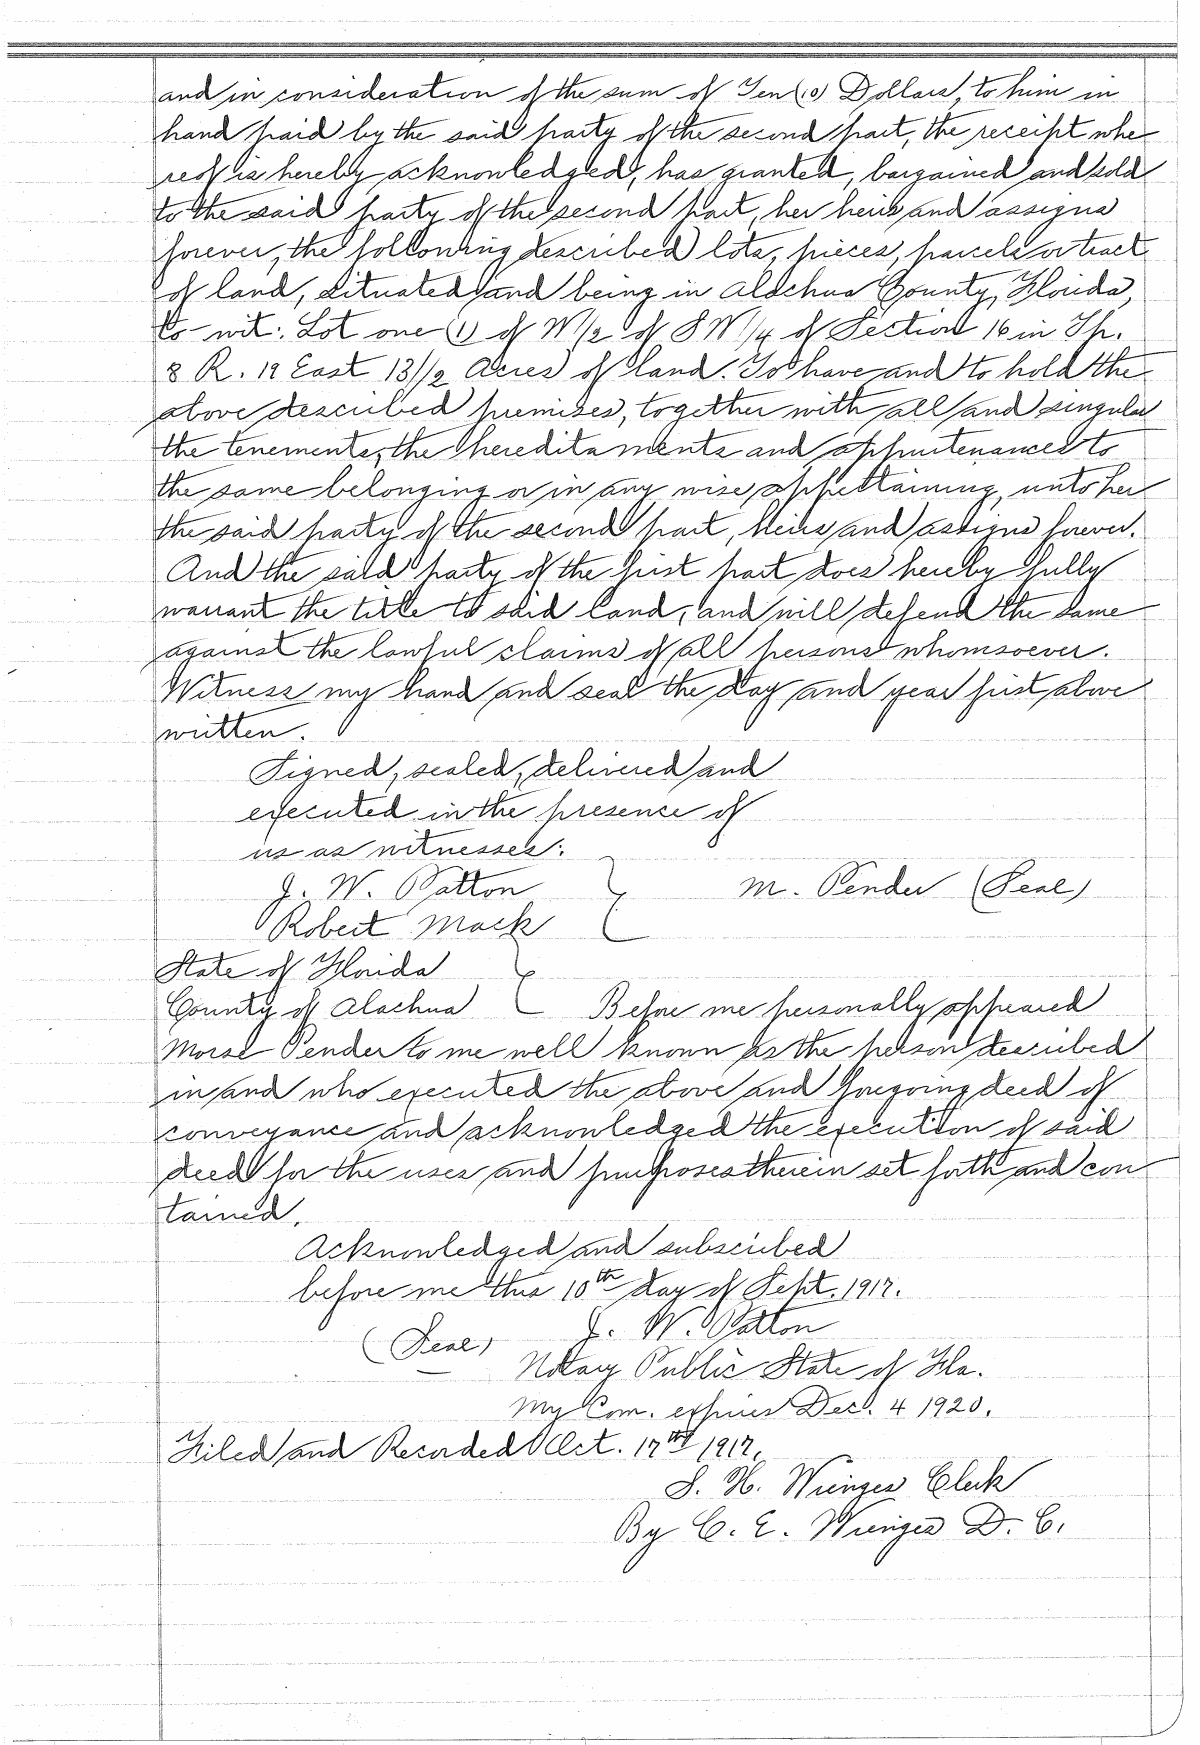 and in consideration of the sum of Ten (10) Dollars, to him in
hand paid by the said party of the second part, the receipt whe
reof is hereby acknowledged, has granted, bargained and sold
to the said party of the second part, her heirs and assigns
forever, the following described lots, pieces, parcels or tract
of land, situated and being in Alachua County, Florida,
to-wit: Lot one (1) of W 1/2 of S W 1/4 of Section 16 in Tp.
8 R. 19 East 13 1/2 Acres of land. To have and to hold the
above described premises, together with all and singular
the tenements, the heredita ments and appurtenances to
the same belonging or in any wise appertaining, unto her
the said party of the second part, heirs and assigns forever.
And the said party of the first part does hereby fully
warrant the title to said land, and will defend the same
against the lawful claims of all persons whomsoever.
Witness my hand and seal the day and year first above
written.
Signed, sealed, delivered and
executed in the presence of
us as witnesses:
J. W. Patton M. Pender (Seal)
Robert Mack
State of Florida
County of Alachua Before me personally appeared
Morse Pender to me well known as the person described
in and who executed the above and foregoing deed of
conveyance and acknowledged the execution of said
deed for the uses and purposes therein set forth and con
tained.
Acknowledged and subscribed
before me this 10th day of Sept. 1917.
(Seal) J. W. Patton
Notary Public State of Fla.
My Com. expires Dec. 4 1920.
Filed and Recorded Oct. 17th 1917.
S. H. Wienges Clerk
By C. E. Wienges D. C.